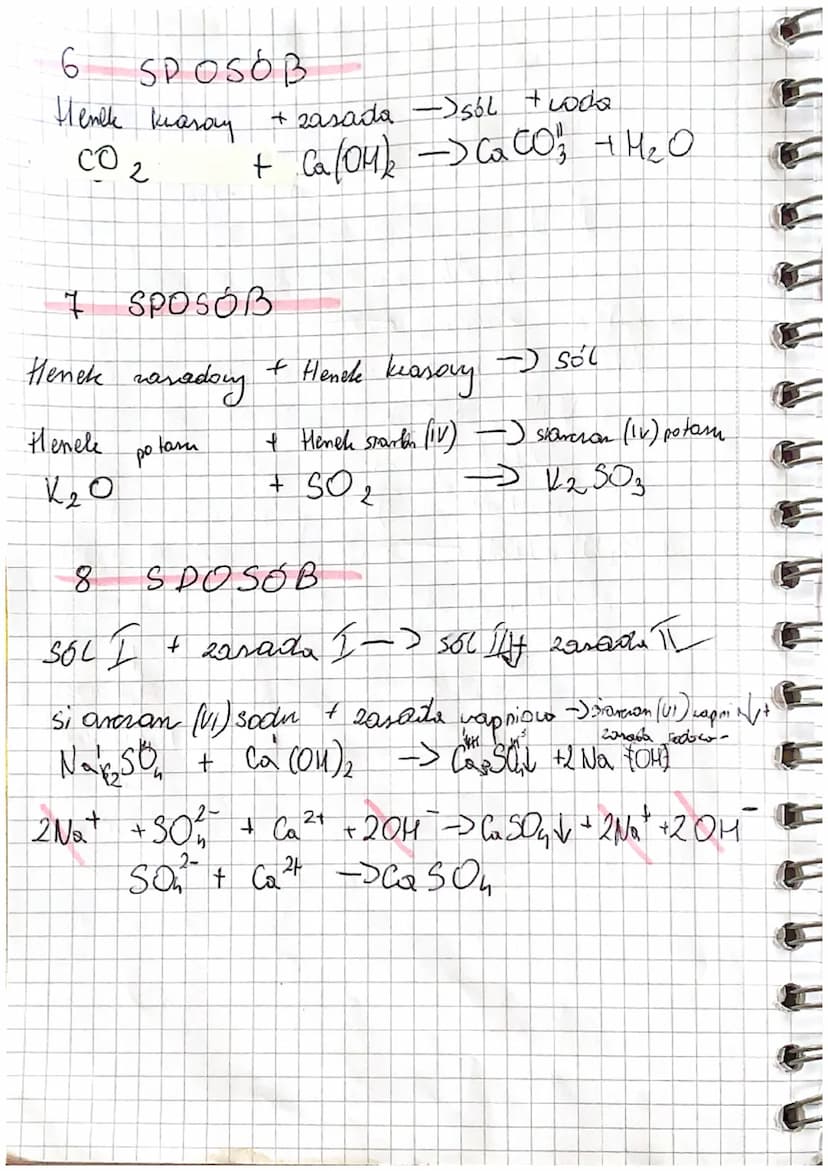 6 SPOSÓB
tlenek kwasowy + zasada → sól + woda
CO₂ + Ca(OH)₂ → CaCO₃ + H₂O
7 SPOSÓB
tlenek zasadowy + tlenek kwasowy → sól
tlenek potasu + tlenek siarki (IV) → siarczan (IV) potasu
K₂O + SO₂ → K₂SO₃
8 SPOSÓB
sól I + zasada I → sól II + zasada II
siarczan (VI) sodu + zasada wapniowa → siarczan (VI) wapnia ↓ +
zasada sodowa
Na₂SO₄ + Ca(OH)₂ → CaSO₄↓ + 2Na(OH)
2Na⁺ + SO₄²⁻ + Ca²⁺ + 2OH⁻ → CaSO₄↓ + 2Na⁺ + 2OH⁻
SO₄²⁻ + Ca²⁺ → CaSO₄